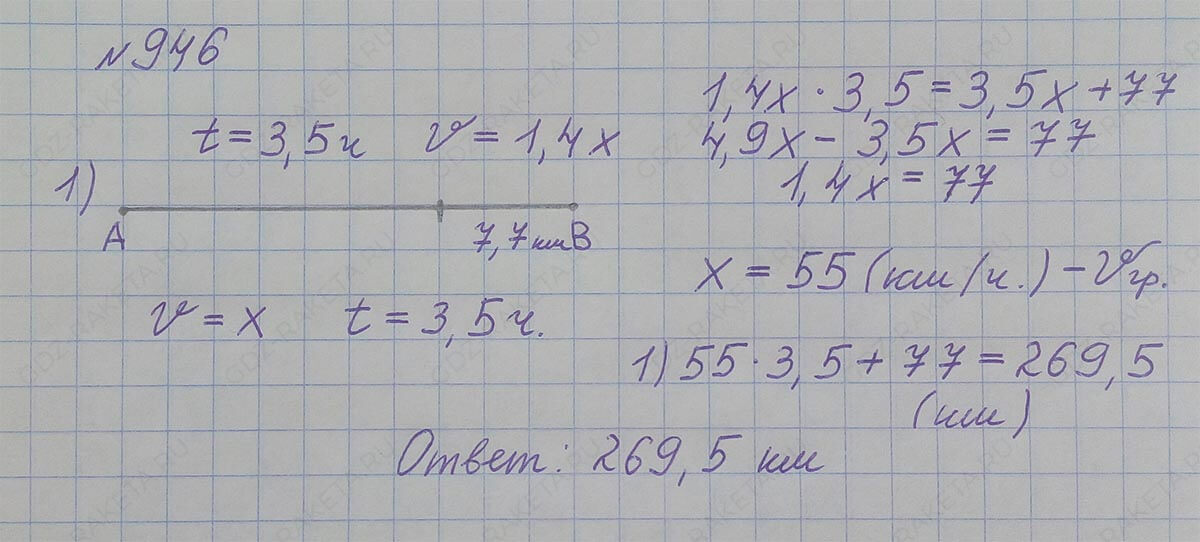 №946
t=3,5ч v=1,4x
1)
A 7,7км B
v=x t=3,5ч.
1,4x·3,5=3,5x+77
4,9x-3,5x=77
1,4x=77
x=55(км/ч.)-vгр.
1)55·3,5+77=269,5
(км)
Ответ: 269,5 км
GDZ-RAKETA.RU